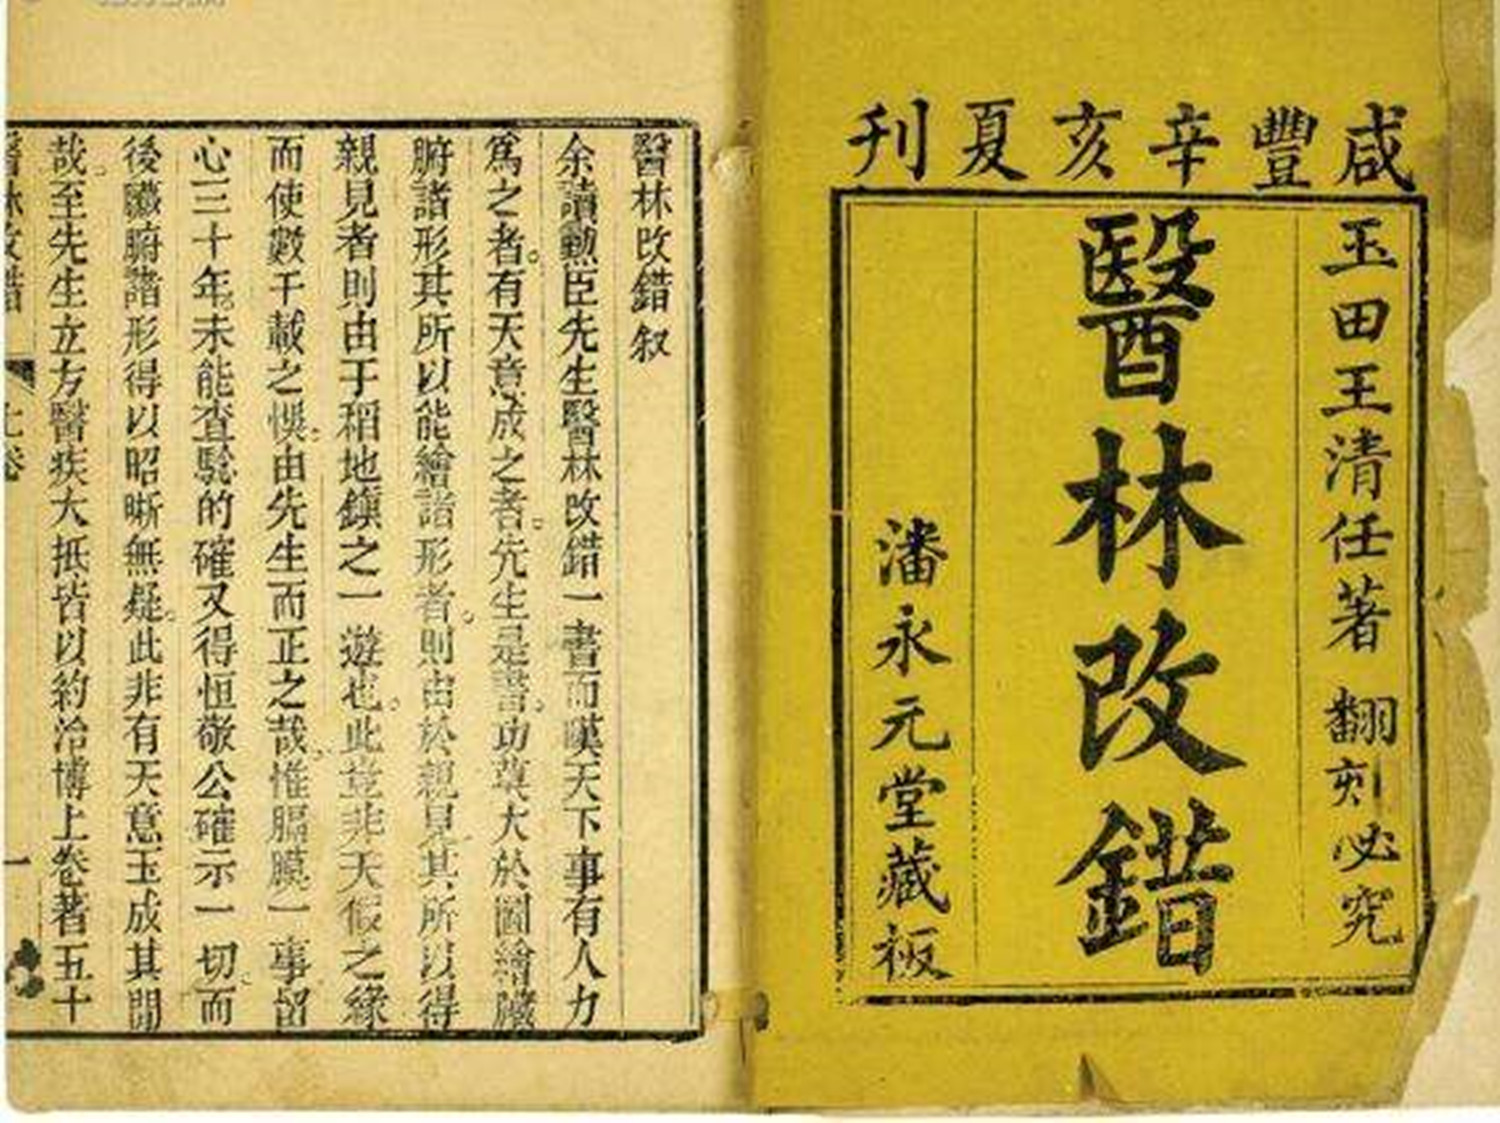 咸豐辛亥夏刊
玉田王清任著 翻刻必究
醫林改錯
潘永元堂藏板
醫林改錯叙
余讀勲臣先生醫林改錯一書而嘆天下事有人力
爲之者有天意成之者先生是書功莫大於圖繪臟
腑諸形其所以能繪諸形者則由於親見其所以得
親見者則由于稻地鎮之一遊也此豈非天假之緣
而使數千載之悞由先生而正之哉惟膈膜一事留
心三十年未能查驗的確又得恒敬公確示一切而
後臟腑諸形得以昭晰無疑此非有天意玉成其間
哉至先生立方醫疾大抵皆以約治博上卷著五十
醫林改錯 上卷 一